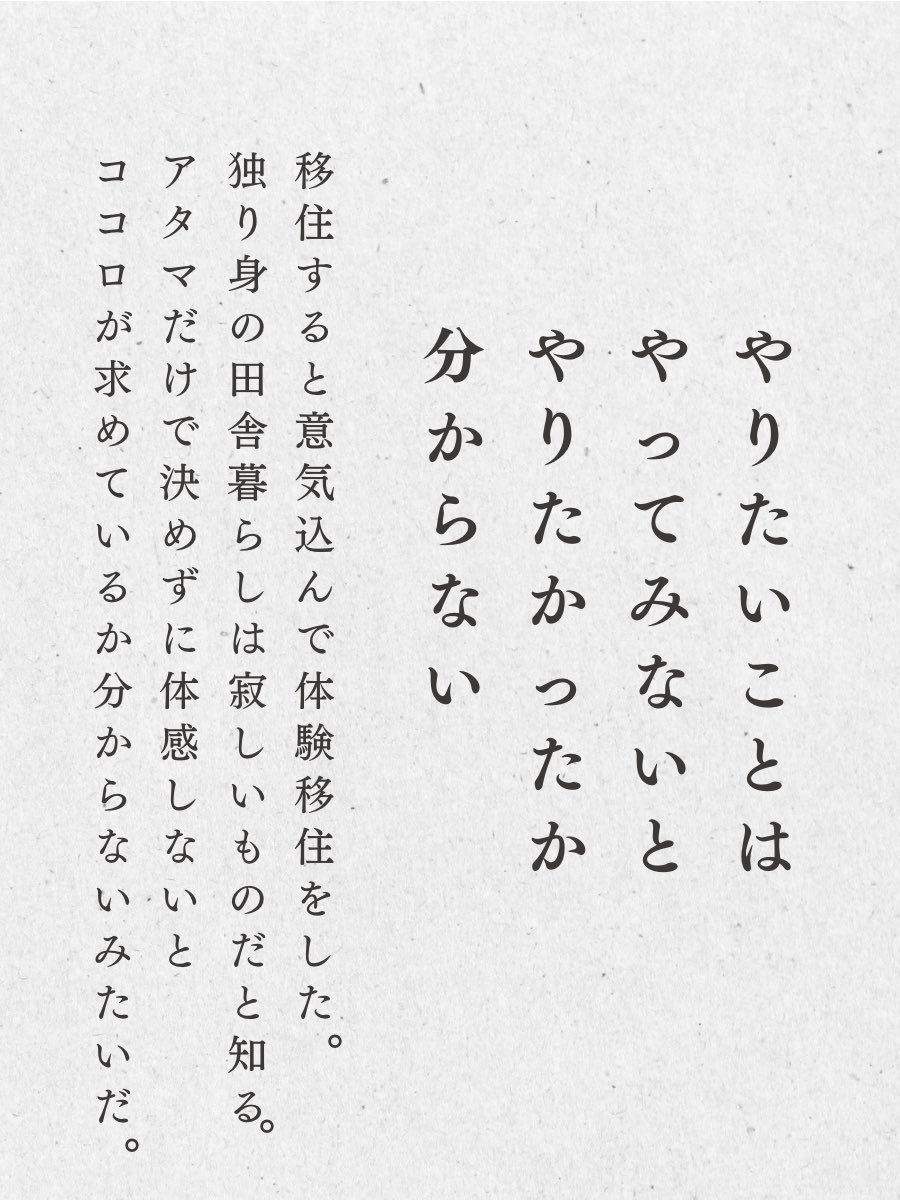 やりたいことは
やってみないと
やりたかったか
分からない
移住すると意気込んで体験移住をした。
独り身の田舎暮らしは寂しいものだと知る。
アタマだけで決めずに体感しないと
ココロが求めているか分からないみたいだ。